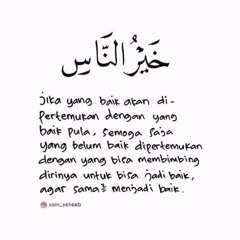 خَيْرُ النَّاسِ
jika yang baik akan di-
pertemukan dengan yang
baik pula, semoga saja
yang belum baik dipertemukan
dengan yang bisa membimbing
dirinya untuk bisa jadi baik,
agar sama² menjadi baik.
zain_zeheeb